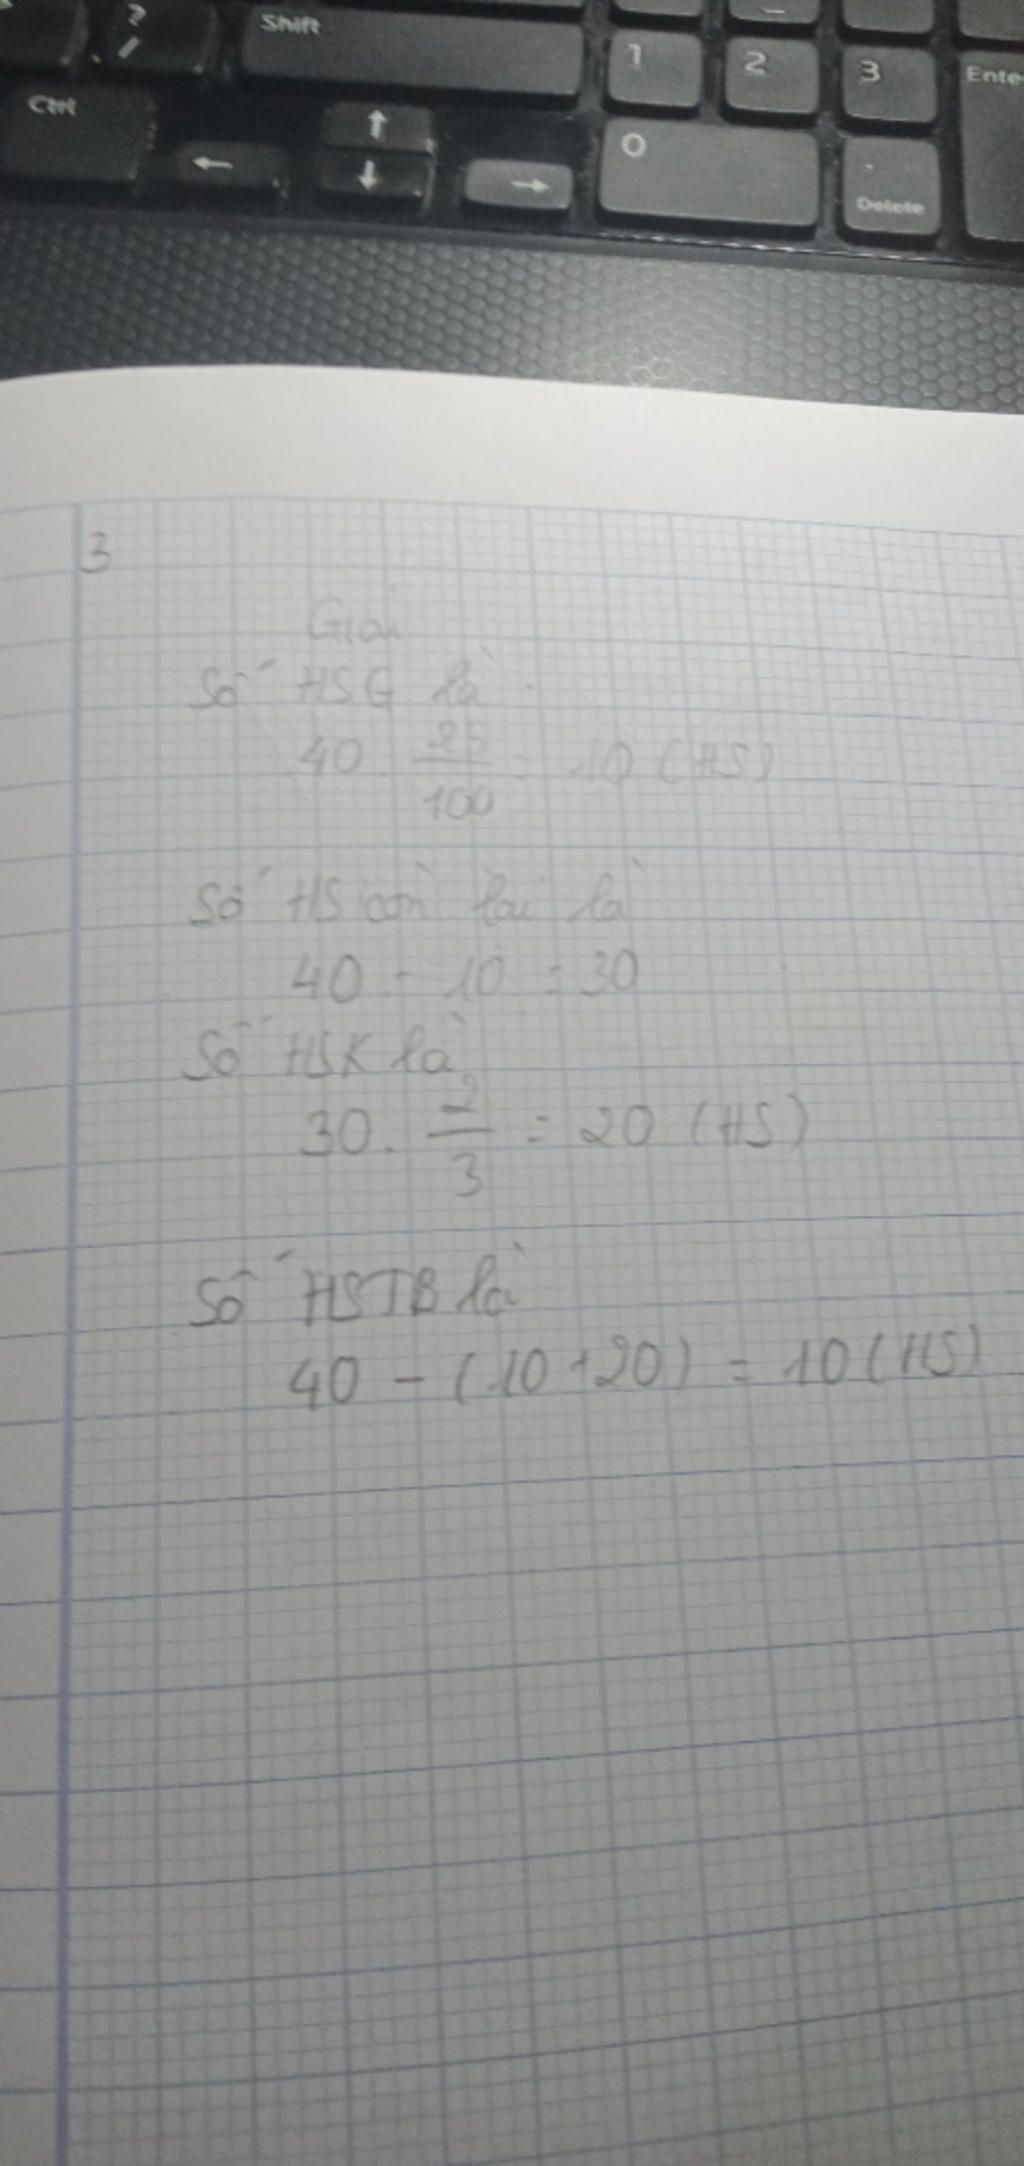 ?
/
Shift
1
2
3
Enter
Ctrl
↑
←
↓
→
0
.
Delete
3
Giải
Số HSG là
40 25/100 = 10 (HS)
Số HS còn lại là
40 - 10 = 30
Số HSK là
30. 2/3 = 20 (HS)
Số HSTB là
40 - (10+20) = 10 (HS)